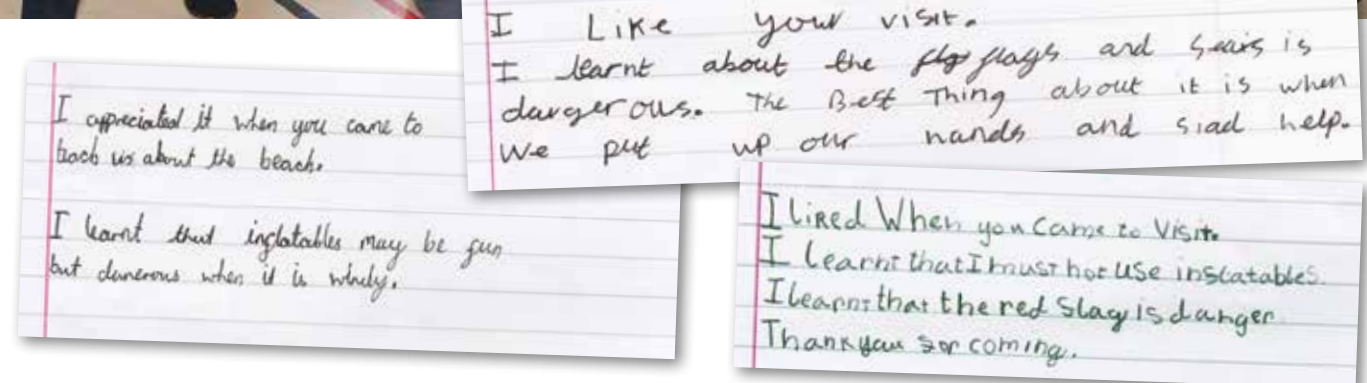 I Like your visit.
I learnt about the flags and seais is
dangerous. The Best Thing about it is when
We put up our hands and siad help.
I appreciated it when you came to
teach us about the beach.
I learnt that inflatables may be fun
but danerous when it is whindy.
I liked When you Came to Visit.
I learnt that I must not use inflatables.
I learnt that the red flag is danger
Thankyou for coming.